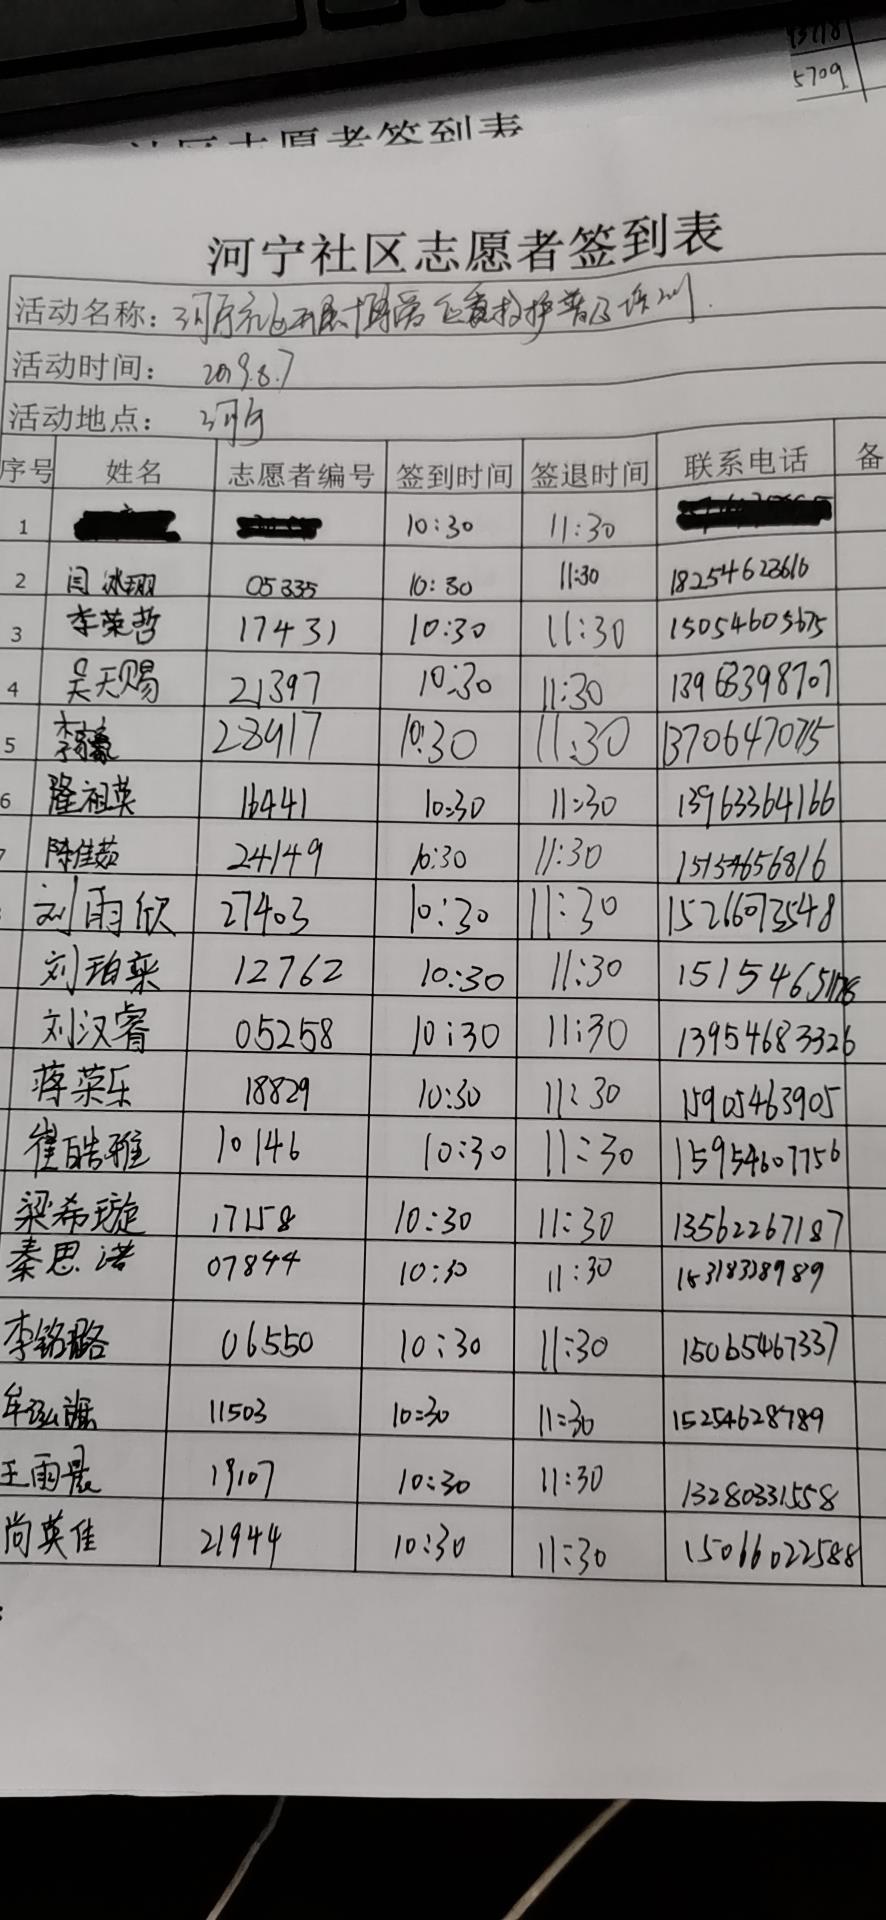 93718
5709
社区志愿者签到表
河宁社区志愿者签到表
活动名称：河宁社区开展 博爱 应急救护普及培训
活动时间： 2019.8.7
活动地点： 河宁
序号 姓名 志愿者编号 签到时间 签退时间 联系电话 备
1 10:30 11:30
2 闫冰翔 05335 10:30 11:30 18254623610
3 李荣哲 17431 10:30 11:30 15054605675
4 吴天赐 21397 10:30 11:30 13963398707
5 28917 10:30 11:30 13706470715
6 隆祖英 16441 10:30 11:30 13963364166
7 陈佳茹 24149 10:30 11:30 15154656816
刘雨欣 27403 10:30 11:30 15266073548
刘珀栾 12762 10:30 11:30
刘汉睿 05258 10:30 11:30 13954683326
蒋荣乐 18829 10:30 11:30 15905463905
崔皓雅 10146 10:30 11:30 15954607756
梁希璇 17158 10:30 11:30 13562267187
秦思诺 07844 10:30 11:30 15318328989
李铭璐 06550 10:30 11:30 15065467337
牟 11503 10:30 11:30 15254628789
王雨晨 19107 10:30 11:30 13280331558
尚英佳 21944 10:30 11:30 15066022588